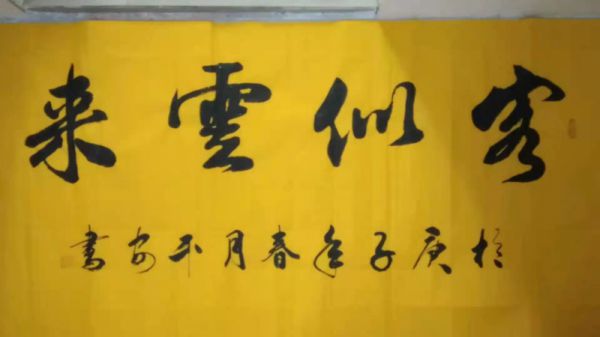 客似雲来
於庚子年春月平安書